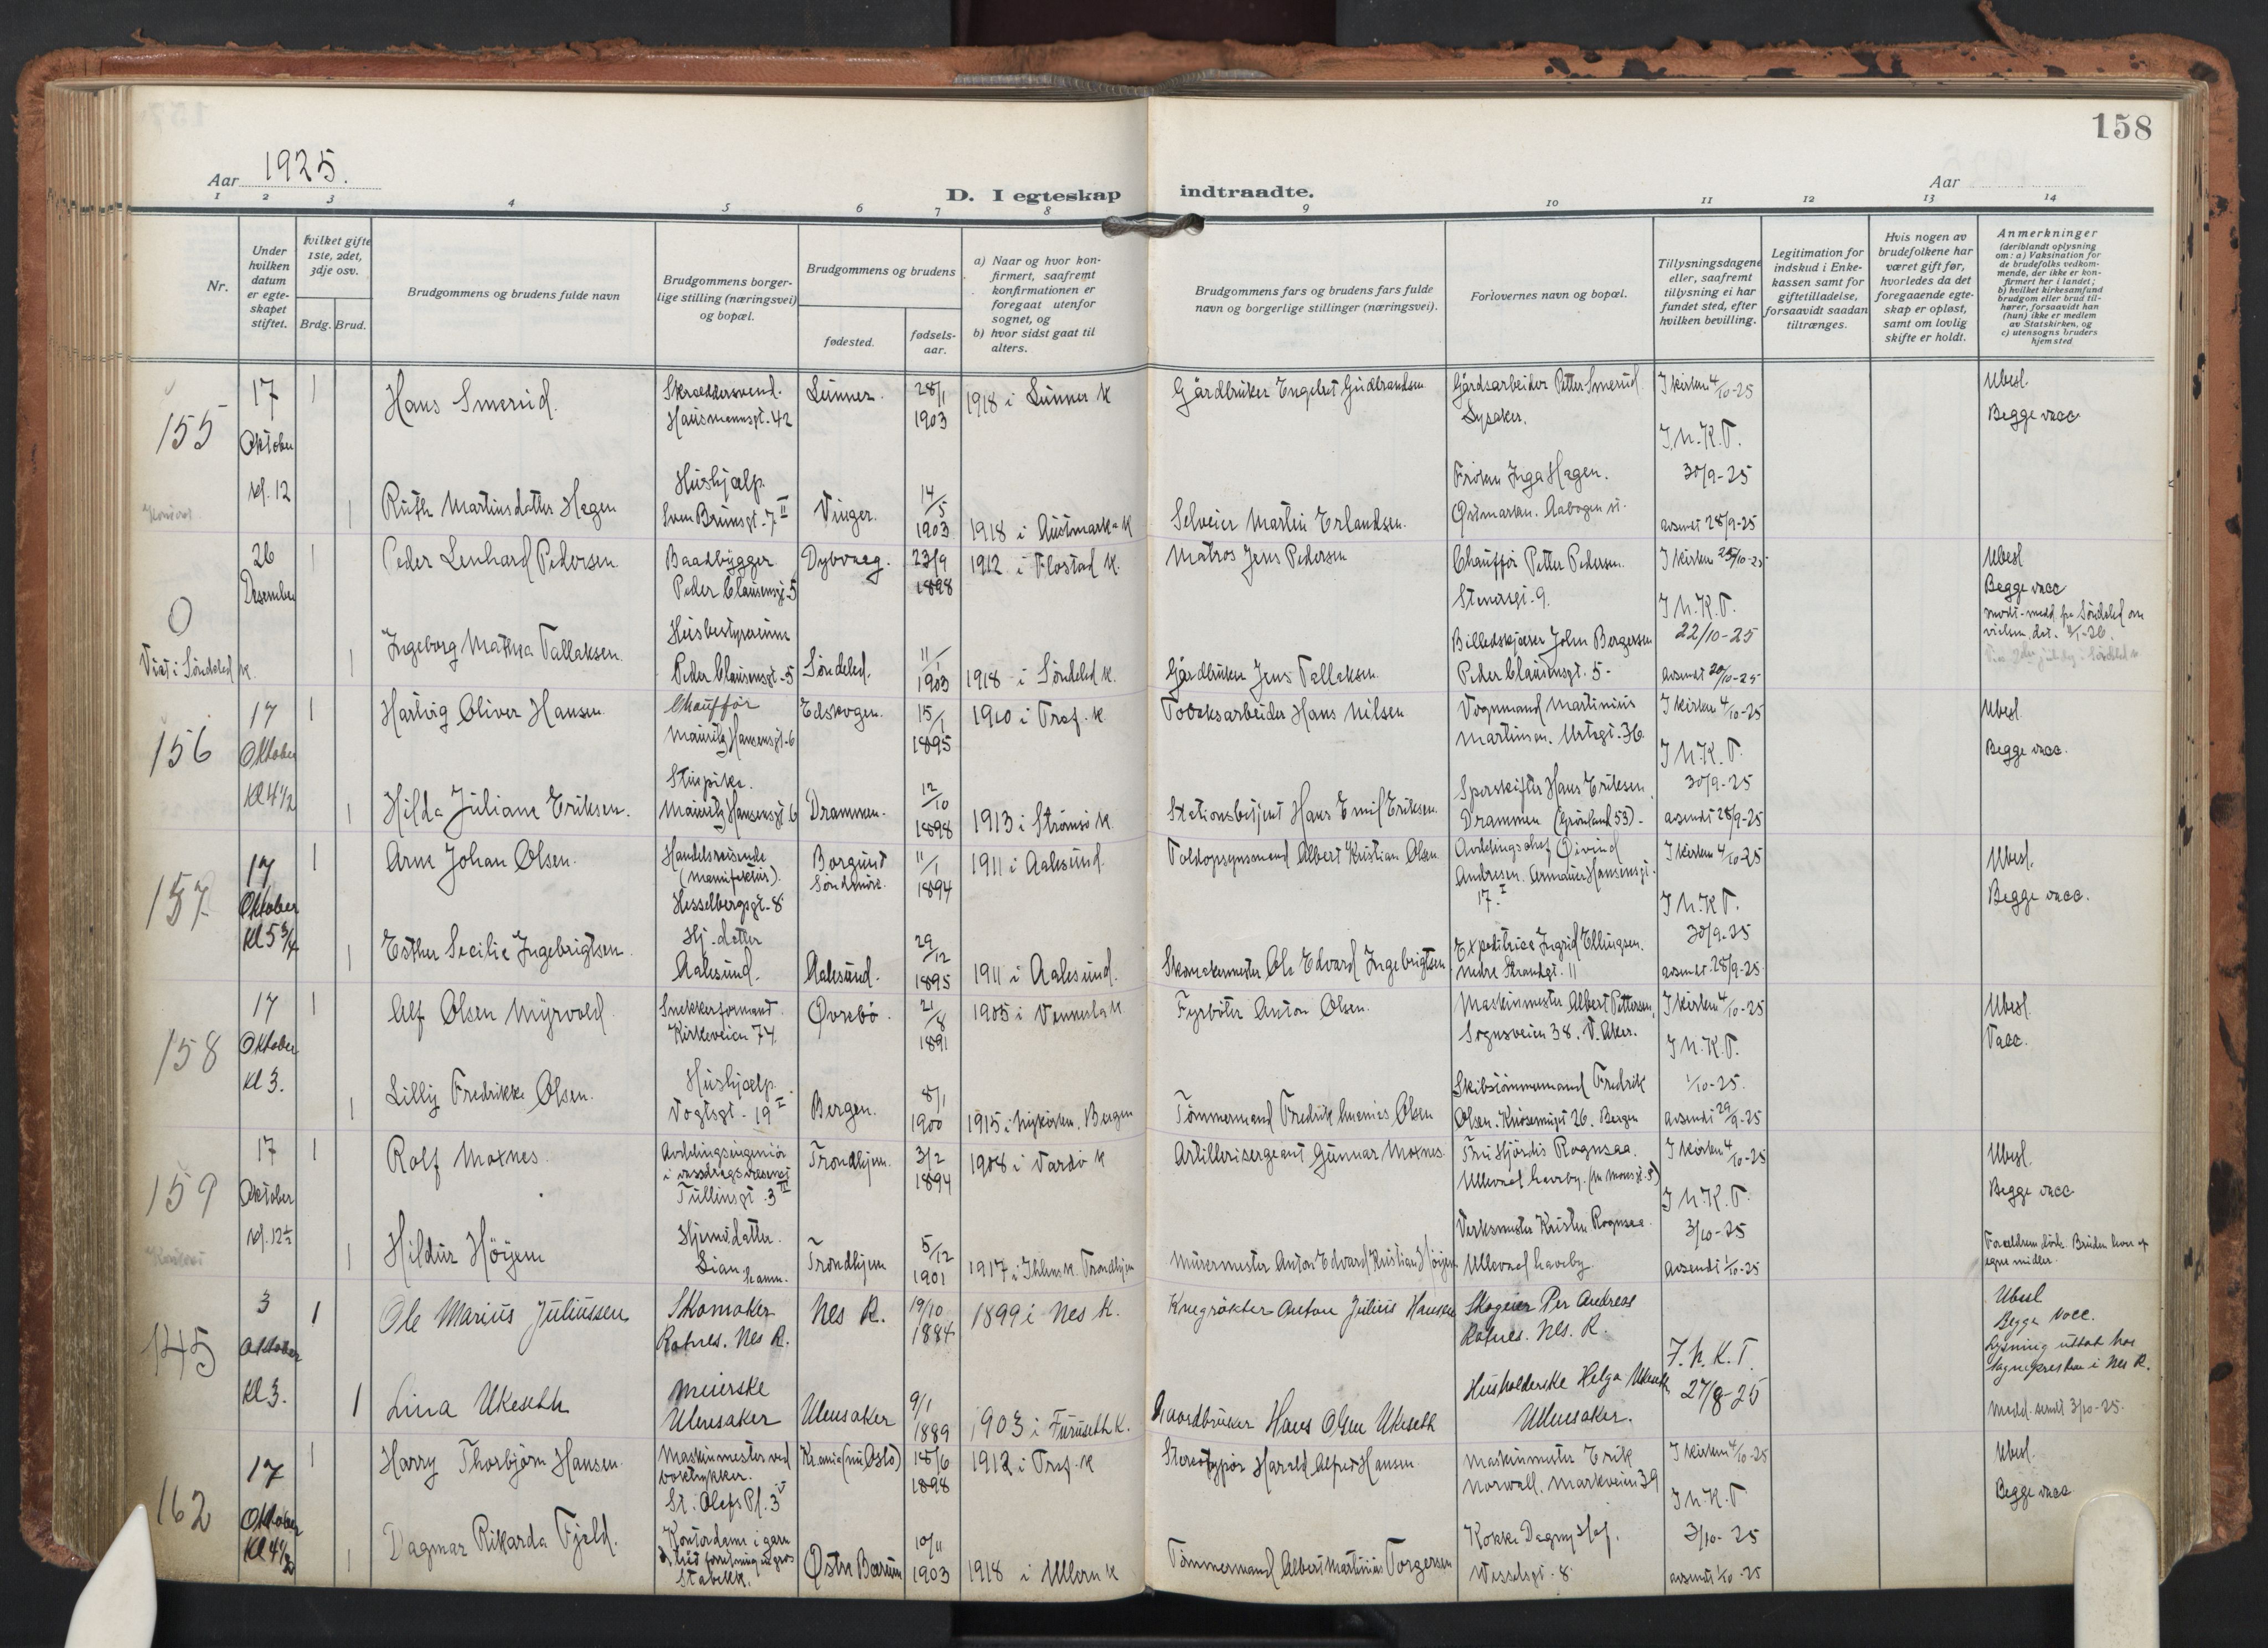 158
Aar 1925.
D. I egteskap indtraadte.
Aar
1 2 3 4 5 6 7 8 9 10 11 12 13 14
Nr.
Under hvilken datum er egteskapet stiftet.
hvilket gifte 1ste, 2det, 3dje osv.
Brdg. Brud.
Brudgommens og brudens fulde navn
Brudgommens borgerlige stilling (næringsvei) og bopæl.
Brudgommens og brudens
fødested.
fødselsaar.
a) Naar og hvor konfirmert, saafremt konfirmationen er foregaat utenfor sognet, og
b) hvor sidst gaat til alters.
Brudgommens fars og brudens fars fulde navn og borgerlige stillinger (næringsvei).
Forlovernes navn og bopæl.
Tillysningsdagene eller, saafremt tillysning ei har fundet sted, efter hvilken bevilling.
Legitimation for indskud i Enkekassen samt for giftetilladelse, forsaavidt saadan tiltrænges.
Hvis nogen av brudefolkene har været gift før, hvorledes da det foregaaende egteskap er opløst, samt om lovlig skifte er holdt.
Anmerkninger
(deriblandt oplysning om: a) Vaksination for de brudefolks vedkommende, der ikke er konfirmert her i landet; b) hvilket kirkesamfund brudgom eller brud tilhører, forsaavidt han (hun) ikke er medlem av Statskirken, og c) utensogns bruders hjemsted
155
17 Oktober kl. 12
1 Hans Smerud. Skræddersvend. Hausmannsgt. 42 Lunner. 28/1 1903 1918 i Lunner K Gårdbruker Engebret Gudbrandsen Gårdsarbeider Petter Smerud Lysaker. I kirken 4/10-25 Ubesl. Begge vacc
I.N.K.T.
1 Ruth Martinsdatter Hagen Hushjælp. Sven Brunsgt. 7 II Vinger. 14/5 1903 1918 i Austmarka K Selveier Martin Erlandsen. Frøken Inga Hagen. Østmarken. Aabogen st. 30/9-25 avsendt 28/9-25
0
Viet i Søndeled K.
26 Desember
1 Peder Lenhard Pedersen Baadbygger Peder Clausensgt. 5 Dybvaag. 23/9 1898 1912 i Flostad K. Matros Jens Pedersen Chauffør Petter Pedersen. Stenersgt. 9. I kirken 25/10-25 Ubesl Begge vacc
I N.K.T. 22/10-25
1 Ingeborg Mathea Tallaksen. Husbestyrerinne Peder Clausensgt. 5 Søndeled. 11/1 1903 1918 i Søndeled K. Gårdbruker Jens Tallaksen Billedskjærer John Bergersen Peder Clausensgt. 5 - avsendt 20/10-25
156
17 Oktober Kl 4 1/2
1 Hartvig Oliver Hansen Chauffør Mauritz Hansensgt. 6 Edskogen. 15/1 1895 1910 i Tref. K. Tobaksarbeider Hans Nilsen Vognmand Martinius Martinsen. Urtegt. 36 I kirken 4/10-25 Ubesl. Begge vacc.
I N.K.T. 30/9-25
1 Hilda Juliane Eriksen. Stuepike. Mauritz Hansensgt. 6 Drammen. 12/10 1898 1913 i Strømsø K. Stationsbetjent Hans Emil Eriksen. Sporskifter Hans Eriksen, Drammen (Grønland 53) - avsendt 28/9-25
157
17 Oktober Kl 5 3/4
1 Arne Johan Olsen. Handelsreisende (manufaktur). Hesselbergsgt. 8 Borgund Søndmøre. 11/1 1894 1911 i Aalesund. Toldopsynsmand Albert Kristian Olsen Avdelingschef Øivind Andresen. Armauer Hansensgt. 17. I I kirken 4/10-25 Ubesl. Begge vacc.
I N.K.T. 30/9-25
1 Esther Secilie Ingebrigtsen. Hj. datter Aalesund. Aalesund. 29/12 1895 1911 i Aalesund. Skomakermester Ole Edvard Ingebrigtsen Expeditrice Ingrid Ellingsen. Nedre Strandgt. 11 avsendt 28/9-25
158
17 Oktober kl 3.
1 Alf Olsen Myrvold Snekkerformand. Kirkeveien 74. Øvrebø. 21/8 1891 1905 i Vennesla K Fyrbøter Anton Olsen. Maskinmester Albert Pettersen, Sognsveien 38. V. Aker. I kirken 4/10-25 Ubesl. Vacc.
I N.K.T. 1/10-25.
1 Lilly Fredrikke Olsen. Hushjælp. Vogtsgt. 19 I Bergen. 8/1 1900 1915 i Nykirken, Bergen Tømmermand Fredrik Olsen Skibstømmermand Fredrik Olsen. 26. Bergen avsendt 29/9-25
159
17 Oktober kl. 12 1/2
1 Rolf Moxnes. Avdelingsingeniør i vassdragsvæsenet Tullinsgt. 3 III Trondhjem. 3/2 1894 1908 i Vardø K Artillerisergeant Gunnar Moxnes. Fru Hjørdis Rognsaa. Ullevaal haveby. I kirken 4/10-25 Ubesl. Begge vacc
I N.K.T. 3/10-25
1 Hildur Høyem Hjemv. datter. Lian hamn. Trondhjem 5/12 1901 1917 i Ihlens K. Trondhjem Murermester Anton Edvard Kristian Høyem Verksmester Kristen Rognsaa. Ullevaal haveby avsendt 1/10-25 Forældrene døde. Bruden lever af egne midler.
145
3 Oktober Kl 3.
1 Ole Marius Juliussen Skomaker Rotnes. Nes R. Nes R. 19/10 1884 1899 i Nes K. Krøgrøkter Anton Julius Hansen Skogeier Per Andreas Rotnes. Nes. R. Ubesl Begge vacc. Lysning uttat hos sognepresten i Nes R.
I.N.K.T. 27/8-25
1 Lina Ukeseth Meierske Ullensaker Ullensaker 9/1 1889 1903 i Furuseth K. Gaardbruker Hans Olsen Ukeseth Husholderske Helga Ukeseth Ullensaker. Medd. sendt 3/10-25.
162
17 Oktober Kl 4 1/2
1 Harry Thorbjørn Hansen Maskinmester ved boktrykker. St. Olafs Pl. 3 V Kr.ania (nu Oslo) 18/6 1898 1912 i Tref. K Stereotypør Harald Alfred Hansen Maskinmester Erik Norwall. Markveien 39 I kirken 4/10-25 Ubesl. Begge vacc
I N.K.T 3/10-25
1 Dagmar Rikarda Fjeld. Kontordame i garn Stabekk. Østre Bærum 10/11 1903 1918 i Ullern K Tømmermand Albert Martinius Torgersen Kokke Dagny Hof. Wesselsgt. 8 avsendt 1/10-25